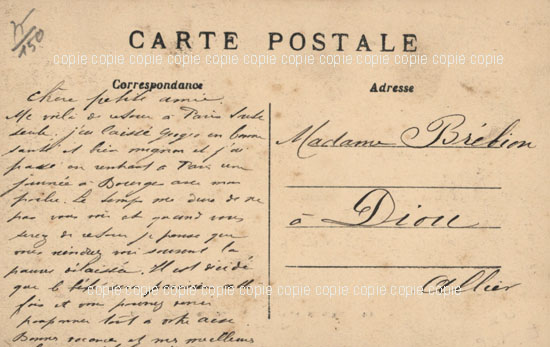 150
CARTE POSTALE
copie copie copie copie copie copie copie copie copie copie copie copie
Correspondance
Chère petite amie.
Me voilà de retour à Paris toute
seule. j'ai laissé en bonne
santé et bien mignon et j'ai
passé en rentrant à Paris une
journée à Bourges avec mon
Le temps me dure de ne
pas vous voir et quand vous
serez de retour je pense que
vous viendrez voir souvent la
pauvre délaissée. Il est décidé
que le bébé
fois et vous pourrez ainsi
pouponner tout à votre aise
Bonnes vacances et mes meilleurs
copie copie copie copie copie copie copie copie copie copie copie copie
Adresse
Madame Brélion
à Diou
Allier
copie copie copie copie copie copie copie copie copie copie copie copie